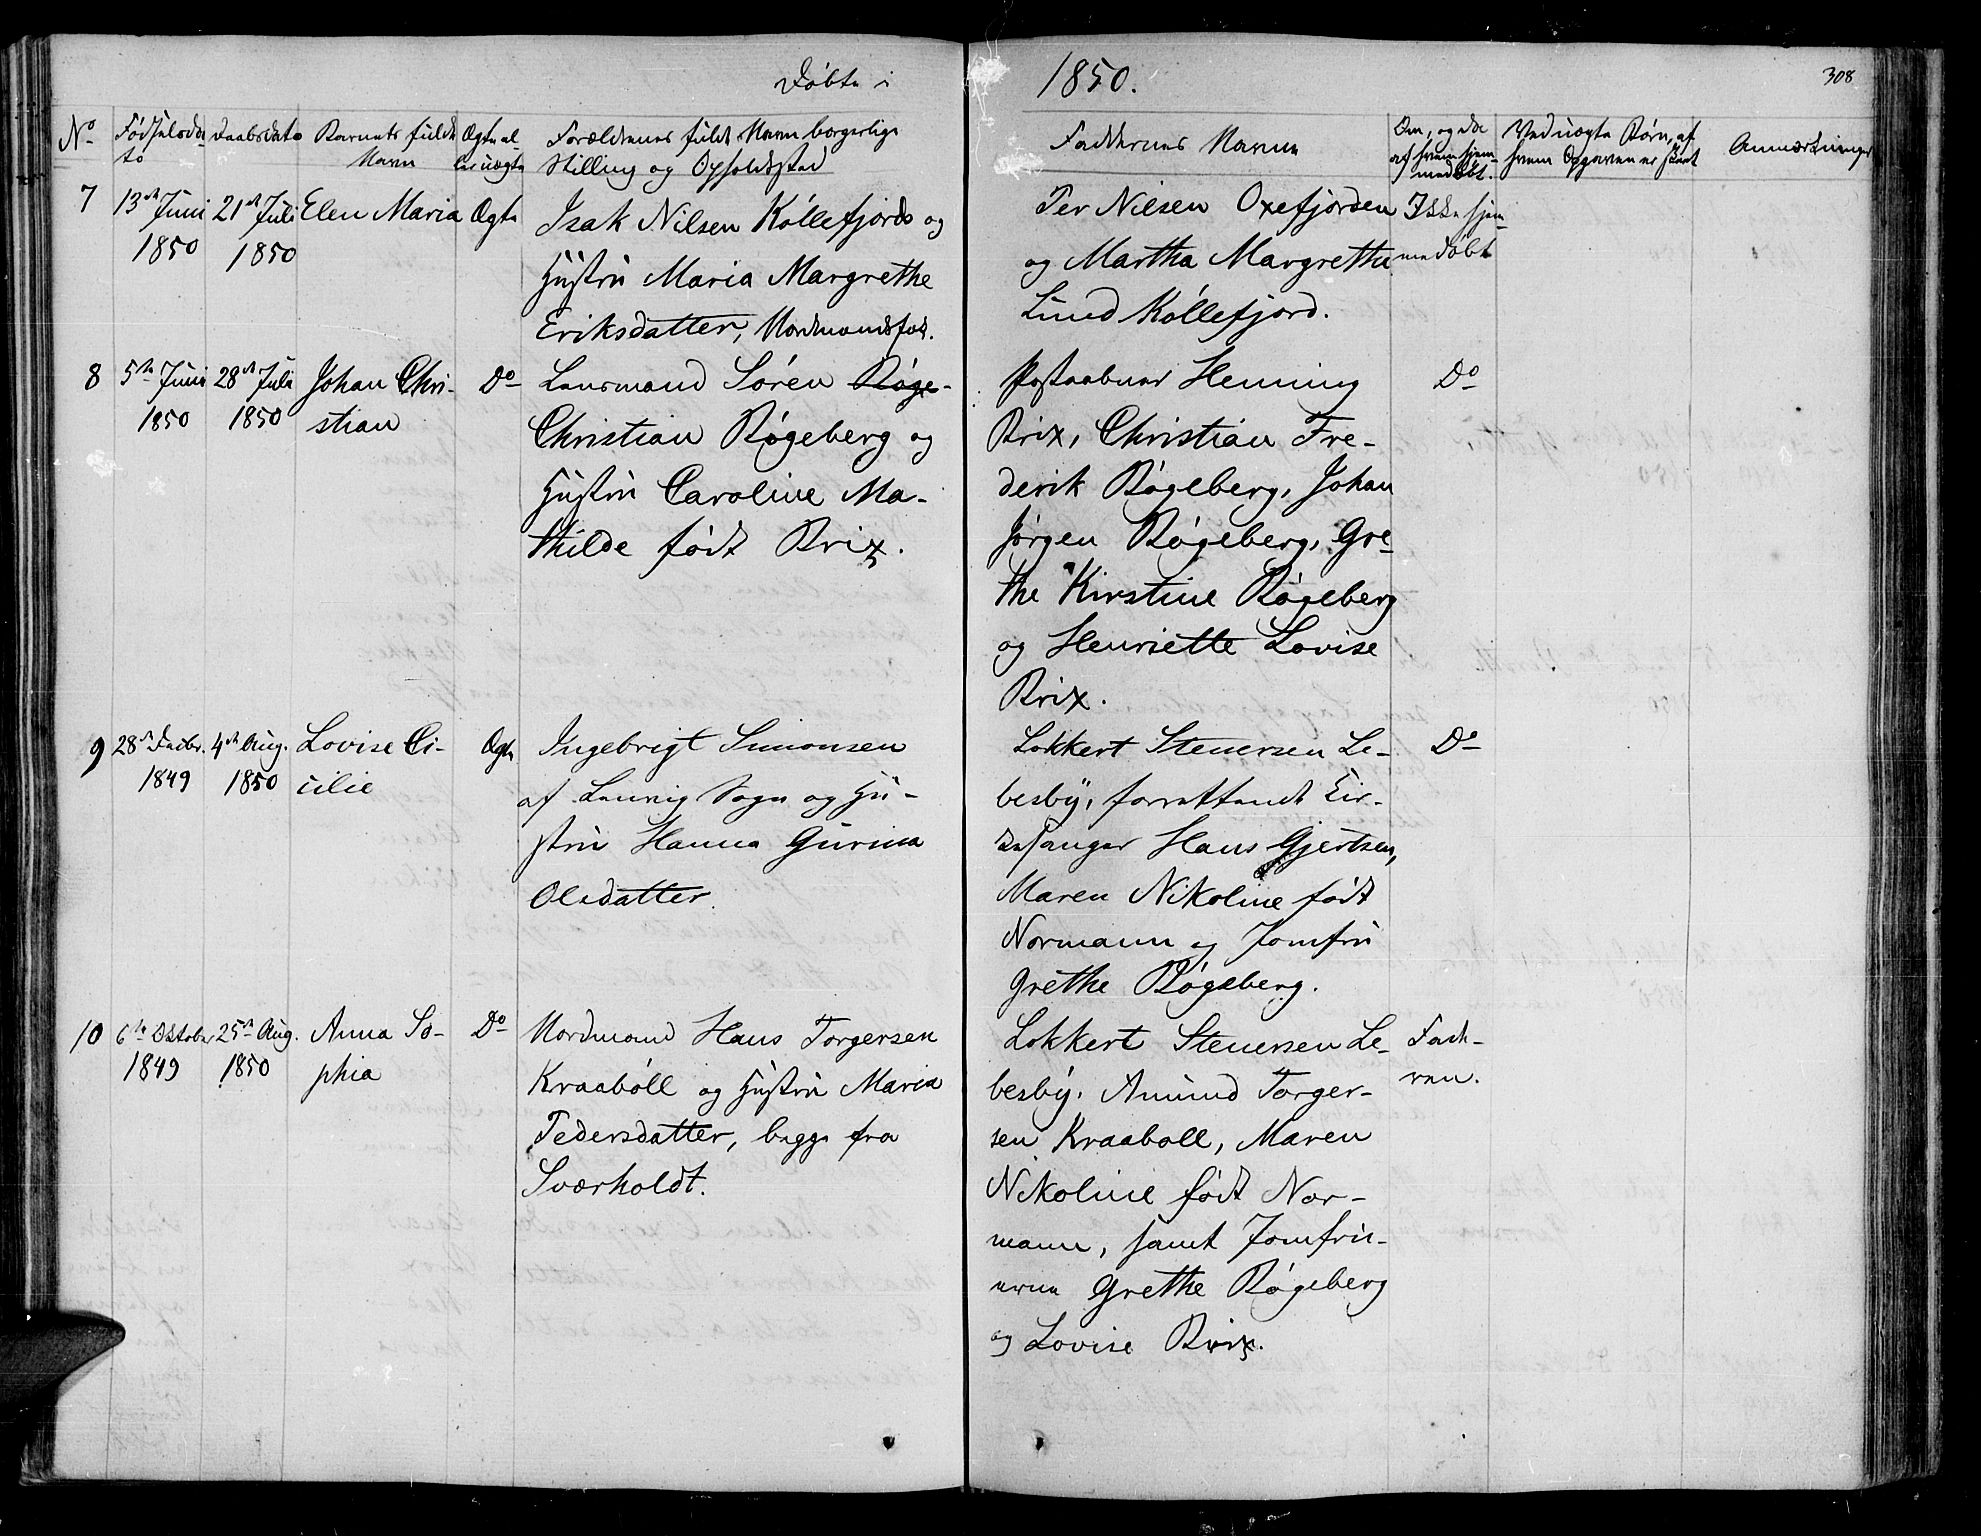 Døbte i
1850.
308
No
Fødselsda-
to
Daabsdato
Barnets fulde
Navn
Ægte el-
ler uægte
Forældrenes fulde Navn borgerlige
Stilling og Opholdssted
Faddernes Navne
Om, og da
af hvem hjem-
medøbt.
Ved uægte Børn, af
hvem Opgaven er skeet
Anmærkninger
7
13de Juni
1850
21de Juli
1850
Elen Maria
Ægte
Isak Nilsen Kóllefjord og
Hustru Maria Margrethe
Eriksdatter, Nordmandsfok.
Per Nilsen Oxefjorden
og Martha Margrethe
Lund Kóllefjord.
Ikke hjem-
medøbt
8
5te Juni
1850
28de Juli
1850
Johan Chri-
stian
Do
Lensmand Sóren Røge-
Christian Røgeberg og
Hustru Caroline Ma-
thilde født Brix.
Postaabner Henning
Brix, Christian Fre-
derik Røgeberg, Johan
Jørgen Røgeberg, Gre-
the Kirstine Røgeberg
og Henriette Lovise
Brix.
Do
9
28de Decbr.
1849
4de Aug.
1850
Lovise Ci-
cilie
Ægte
Ingebrigt Simonsen
af Sogn og Hu-
stru Hanna Gurina
Olsdatter.
Lokkert Steuersen Le-
besby, forrettende Kir-
kesanger Hans Gjertsen,
Maren Nikoline født
Normann og Jomfru
Grethe Røgeberg.
Do
10
6te Oktober
1849
25de Aug.
1850
Anna So-
phia
Do
Nordmand Hans Torgersen
Kraabøll og Hustru Maria
Pedersdatter, begge fra
Sværholdt.
Lokkert Steuersen Le-
besby, Amund Torger-
sen Kraaboll, Maren
Nikoline født Nor-
mann, samt Jomfru-
erne Grethe Røgeberg
og Lovise Brix.
Fade-
ren.